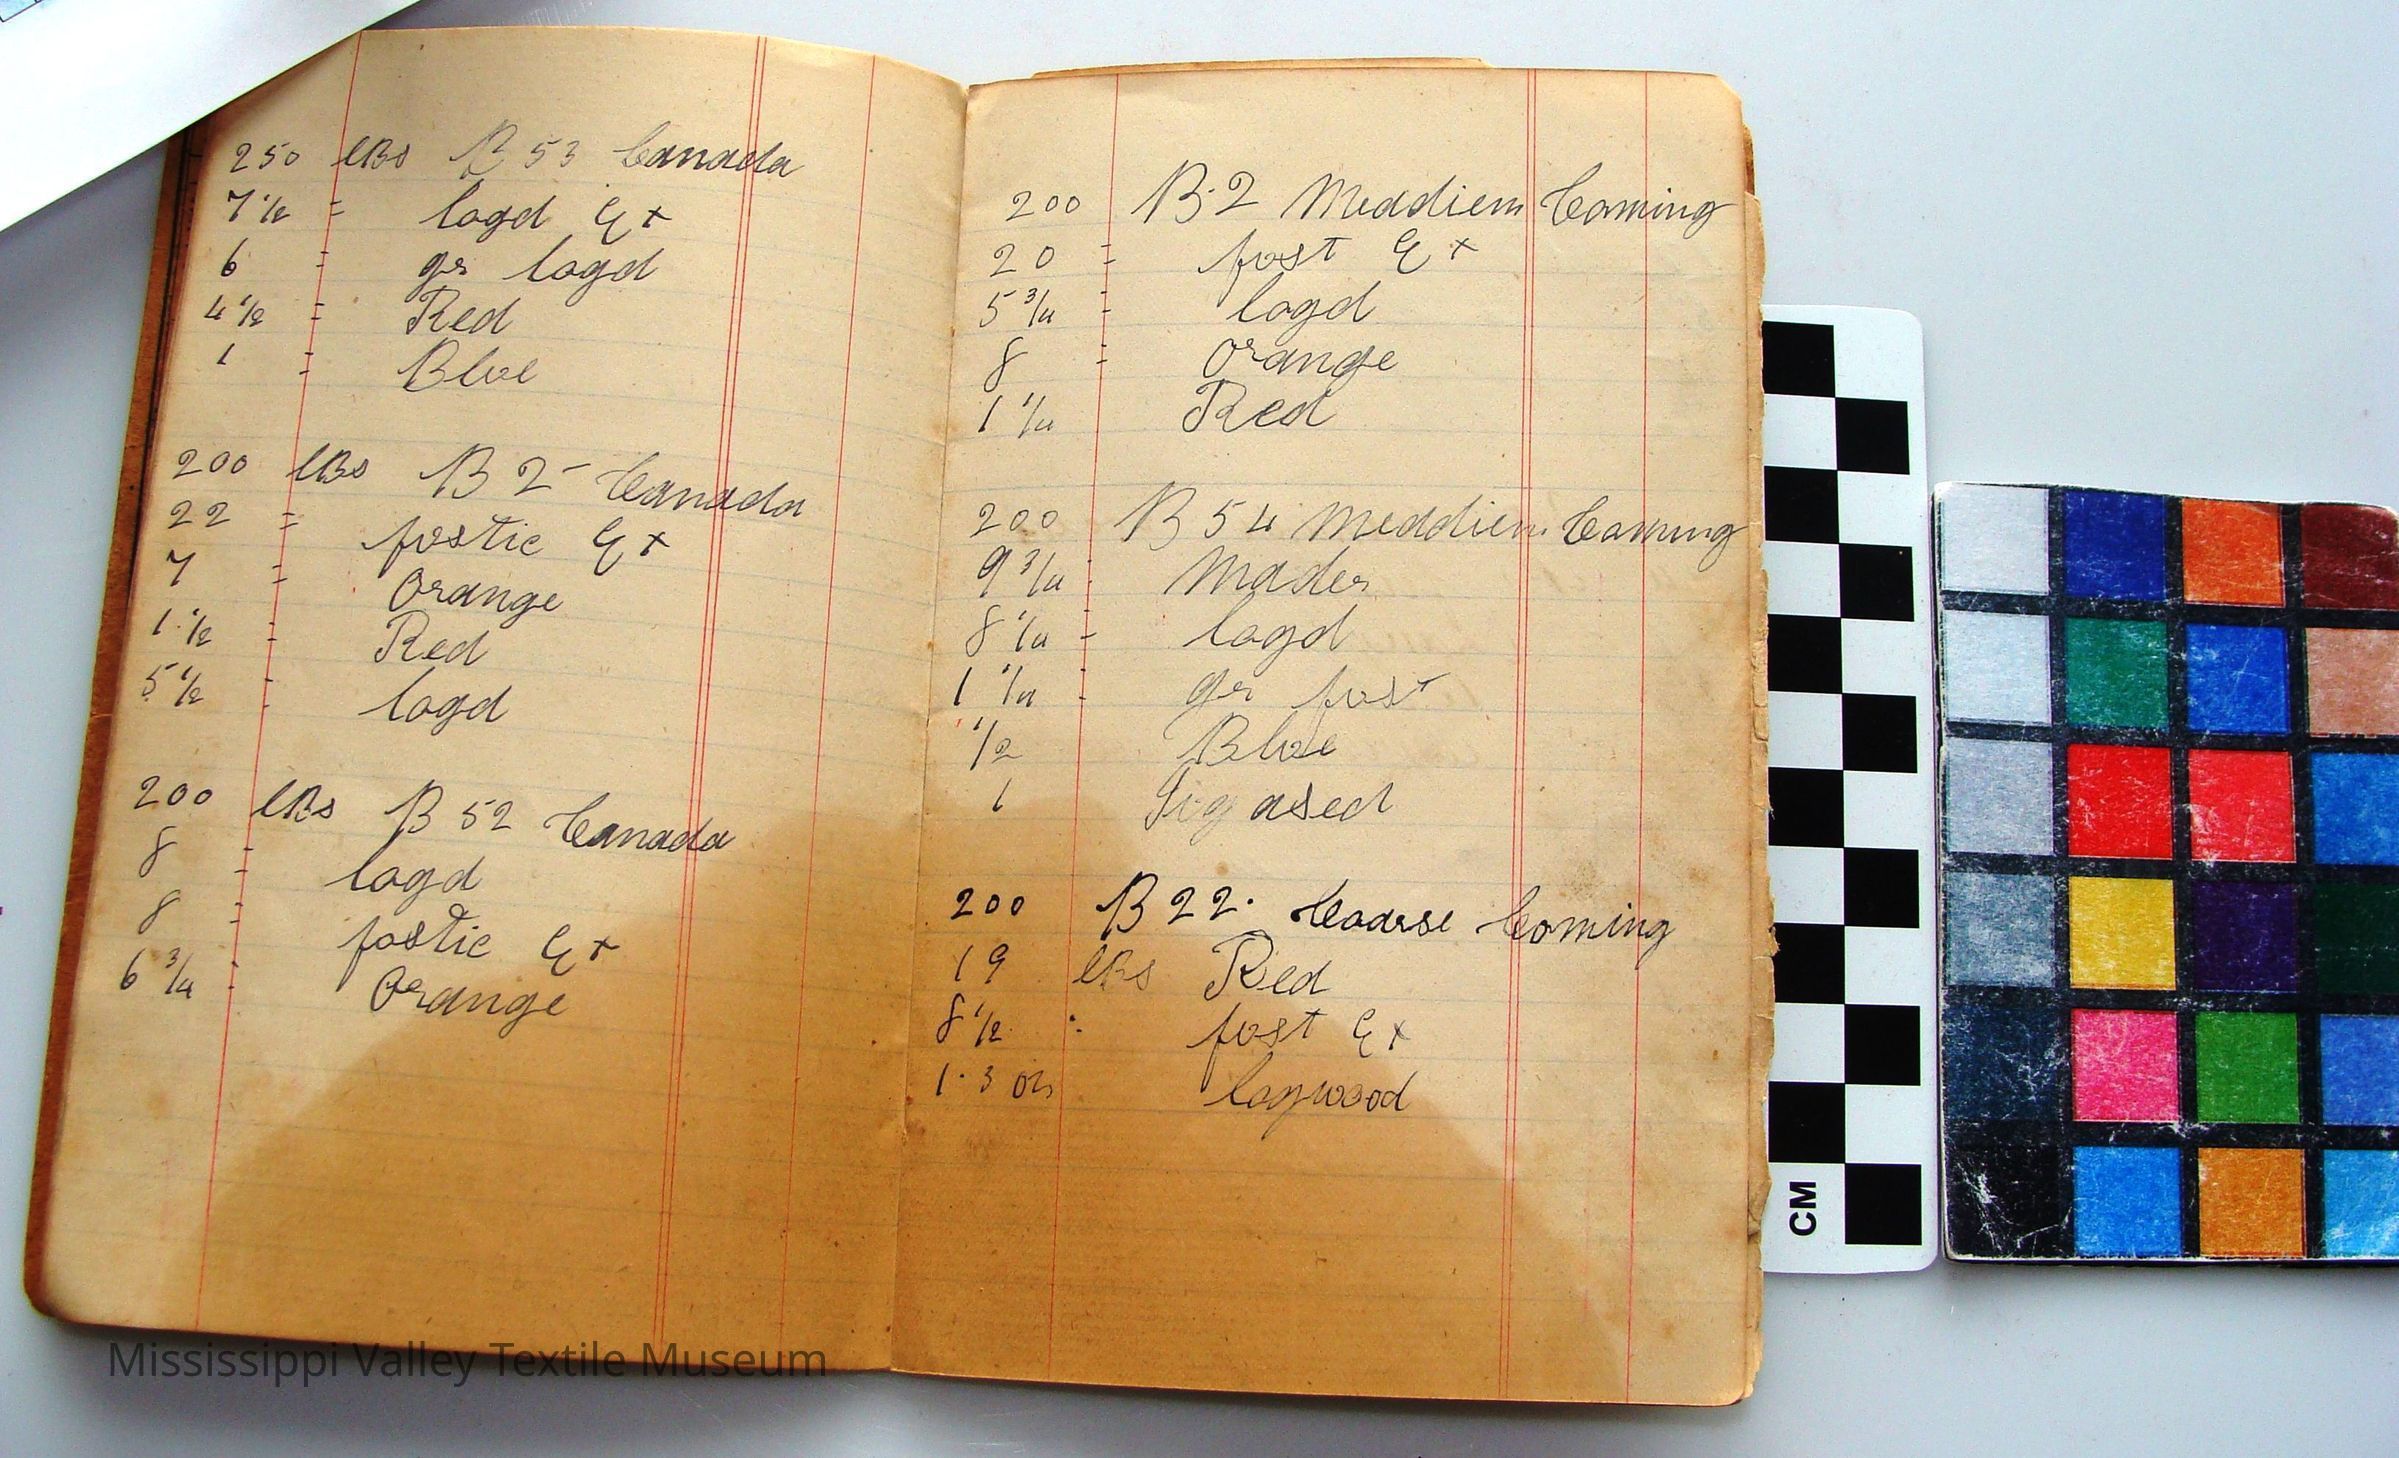 250 lBs B 53 Canada
7 1/2 = logd Ex
6 = gr logd
4 1/2 = Red
1 = Blue
200 lBs B 2 - Canada
22 = fustic Ex
7 = Orange
1 1/2 = Red
5 1/2 = logd
200 lBs B 52 Canada
8 = logd
8 = fustic Ex
6 3/4 = Orange
200 B 2 Meddiem Coming
20 = fust Ex
5 3/4 = logd
8 = Orange
1 1/4 Red
200 B 54 Meddiem Coming
9 3/4 = Mader
8 1/4 = logd
1 1/4 = gr fust
1/2 Blue
1 ased
200 B 22. Coarse Coming
19 lBs Red
8 1/2 = fust Ex
1. 3 logwood
CM
Mississippi Valley Textile Museum